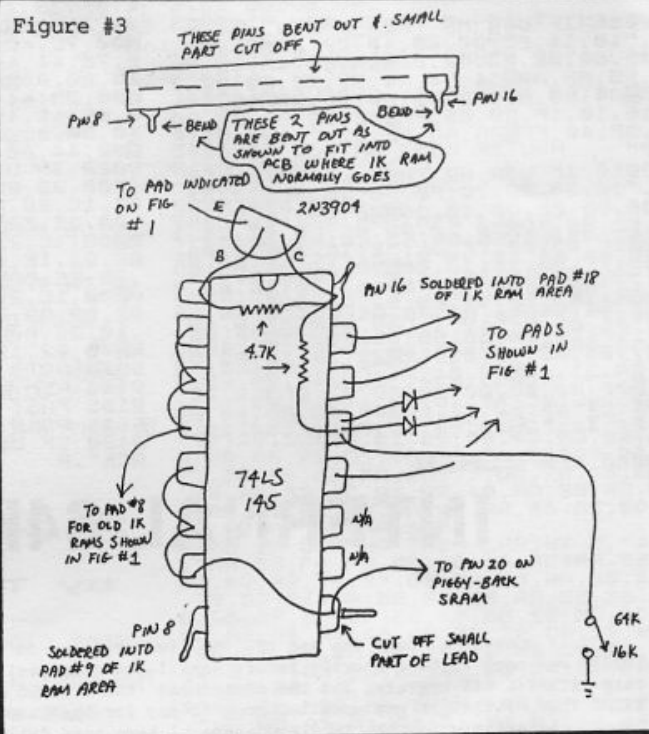 Figure #3
THESE PINS BENT OUT & SMALL
PART CUT OFF
PIN 8
BEND
BEND
PIN 16
THESE 2 PINS
ARE BENT OUT AS
SHOWN TO FIT INTO
PCB WHERE 1K RAM
NORMALLY GOES
TO PAD INDICATED
ON FIG
#1
E
2N3904
B
C
PIN 16 SOLDERED INTO PAD #18
OF 1K RAM AREA
4.7K
TO PADS
SHOWN IN
FIG #1
74LS
145
TO PAD #8
FOR OLD 1K
RAMS SHOWN
IN FIG #1
N/A
N/A
TO PIN 20 ON
PIGGY-BACK
SRAM
PIN 8
SOLDERED INTO
PAD #9 OF 1K
RAM AREA
CUT OFF SMALL
PART OF LEAD
64K
16K